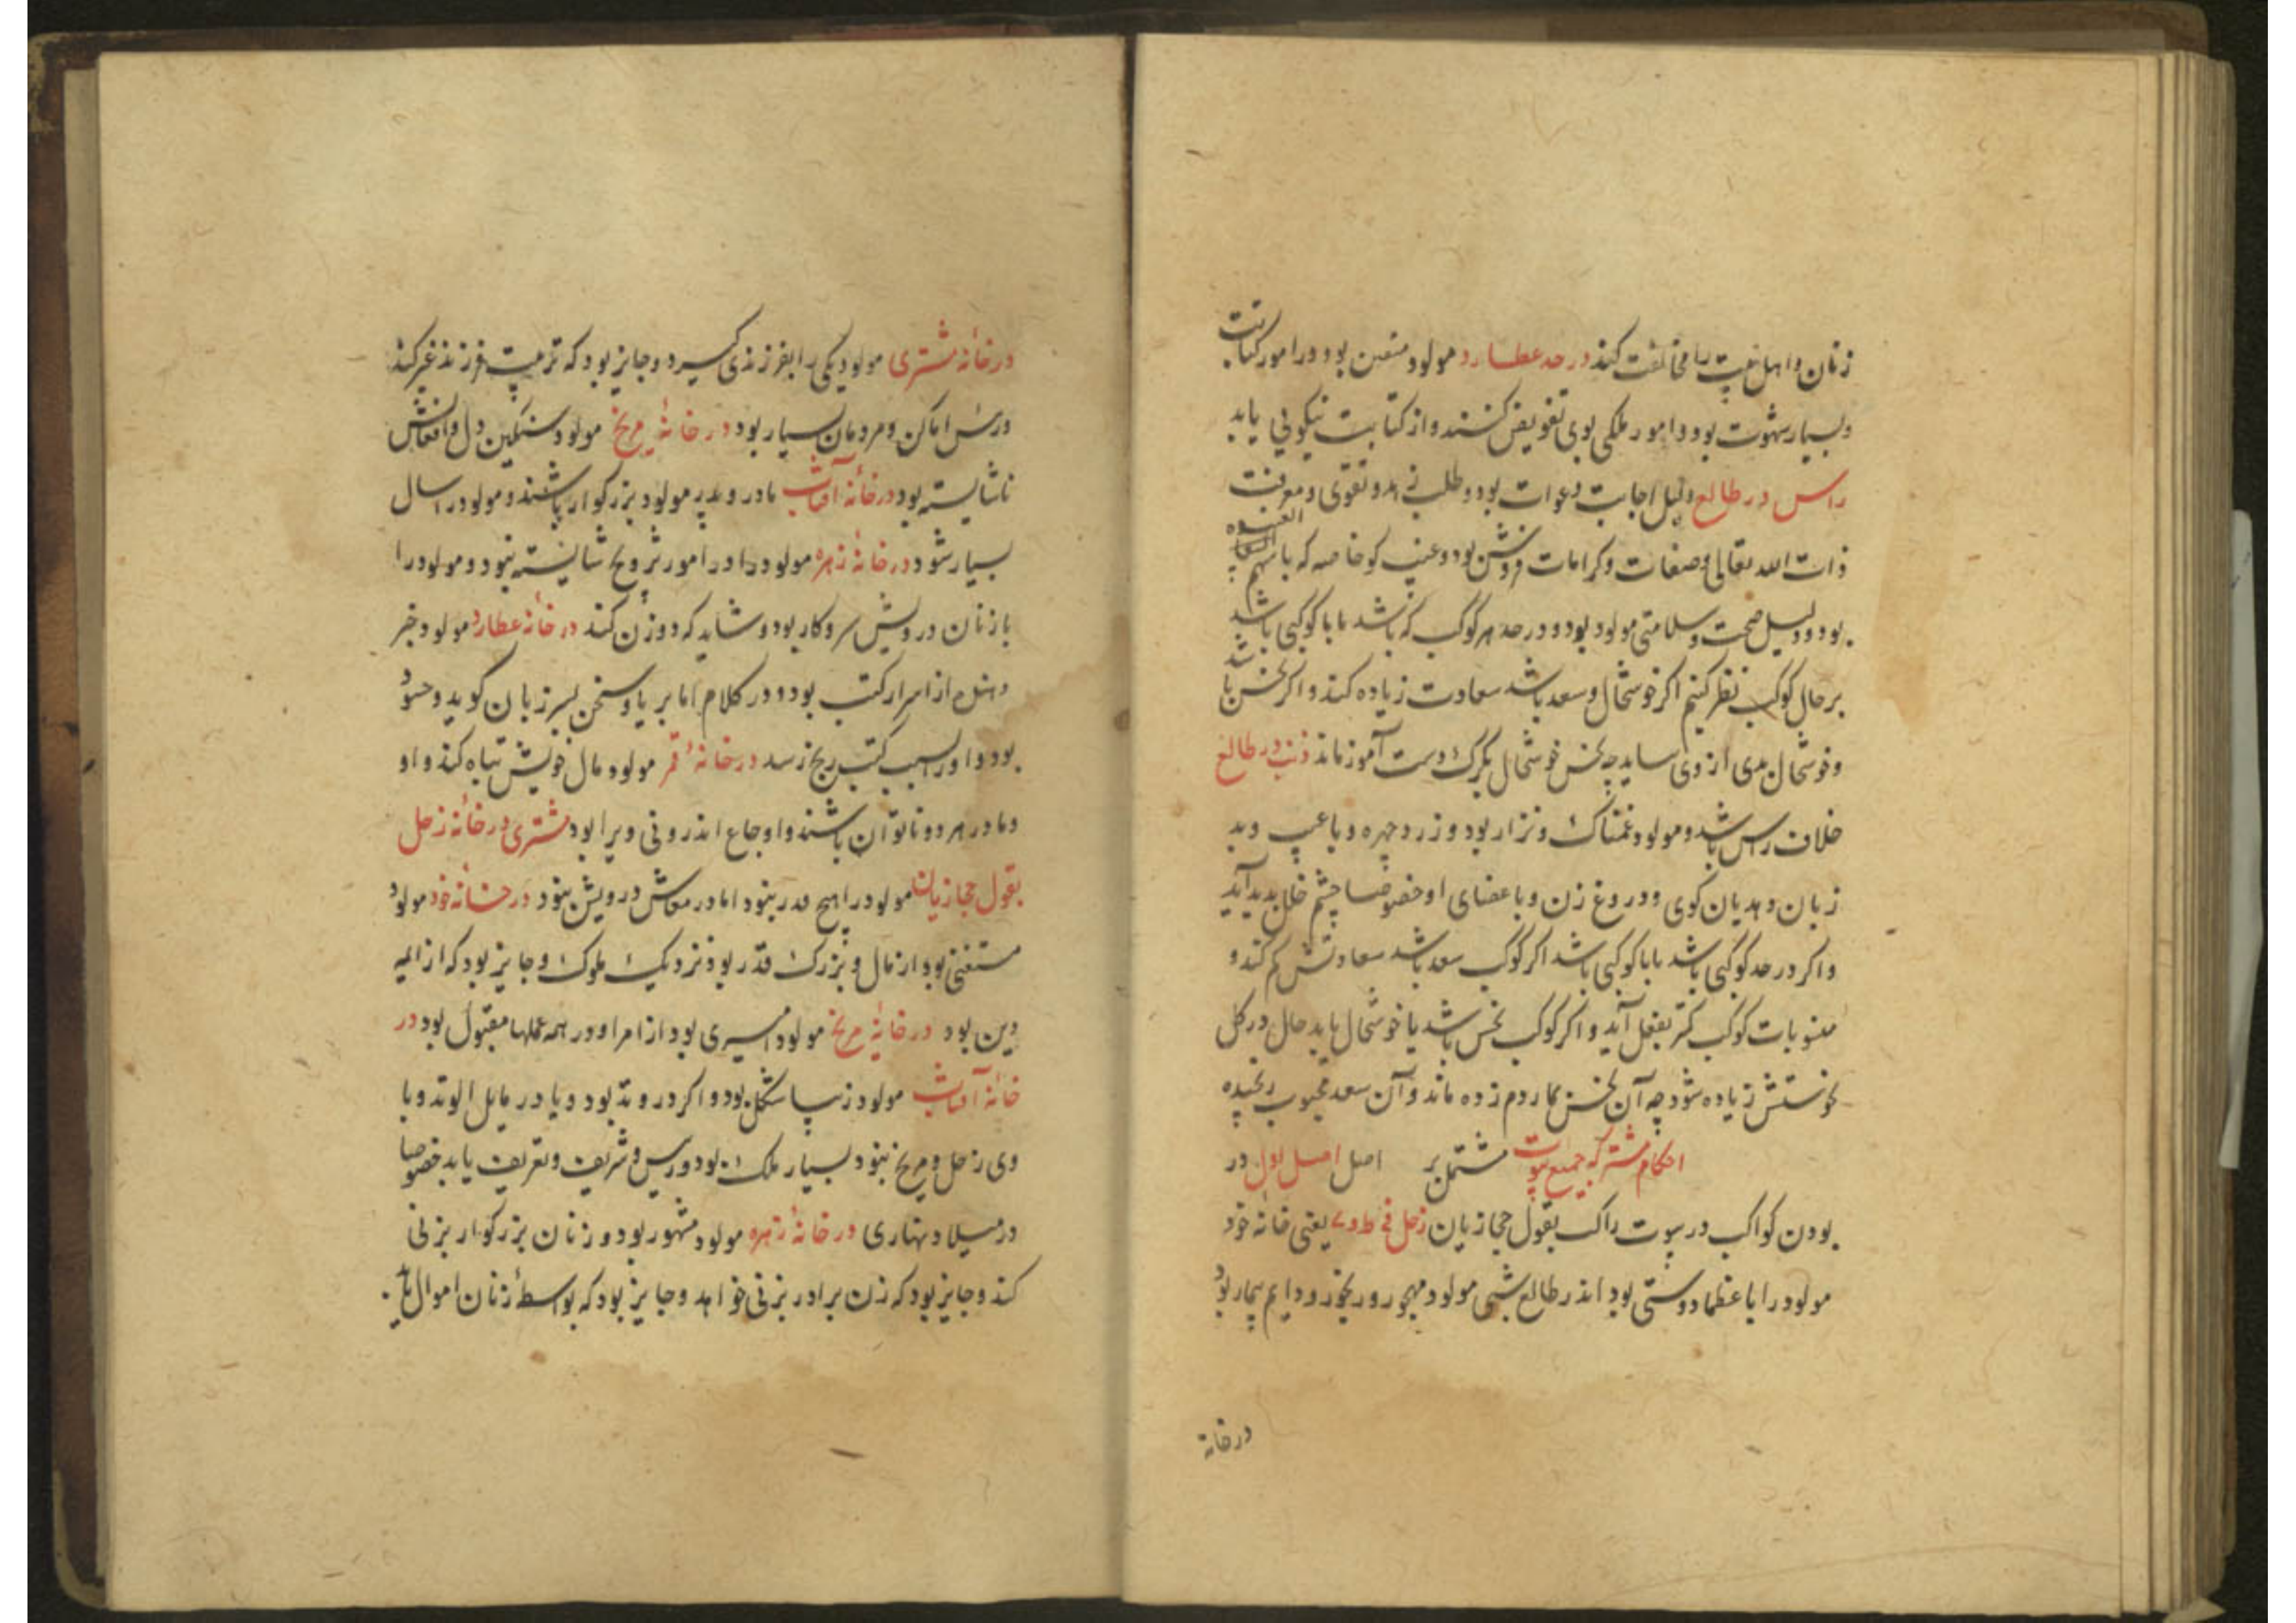 زنان و اهل بیت را مخالفت کند در حد عطارد مولود متعین بود و در امور کتابت
و بسیار شهوت بود و امور ملکی بوی تفویض کنند و از کتابت نیکوئی یابد
راس در طالع دلیل اجابت دعوات بود و طلب زهد و تقوی و معرفت
ذات الله تعالی و صفات و کرامات فروشن بود و غیب کو خاصه که با سهم
بود و دلیل صحت و سلامتی مولود بود و در حد هر کوکب که باشد یا با کوکبی باشد
بر حال کوکب نظر کنیم اکر خوشحال و سعد باشد سعادت زیاده کند و اکر نحس باشد
و خوشحال بدی از وی ساید چه نحس خوشحال بکرک دست آموز ماند ذنب در طالع
خلاف راس باشد و مولود غمناک و نزار بود و زرد چهره و با عیب و بد
زبان و هدیان کوی و دروغ زن و با عضای او خصوصا چشم خلل بدید آید
و اکر در حد کوکبی باشد یا با کوکبی باشد اکر کوکب سعد باشد سعادتش کم کند و
منسوبات کوکب کمتر بفعل آید و اکر کوکب نحس باشد یا خوشحال یا بد حال در کل
نحوستش زیاده شود چه آن نحس بمار دم زده ماند و آن سعد بمحبوب رنجیده
احکام مشترکه جمیع بیوت مشتمل بر اصل اصل اول در
بودن کواکب در بیوت راکب بقول حجازیان زحل فی ط و ے یعنی خانه خود
مولود را با عظما دوستی بود اندر طالع شبی مولود مهجور و رنجور و دایم بیمار بود
در خانه
در خانه مشتری مولود یکی را بفرزندی کیرد و جایز بود که تربیت فرزند غیر کند
و رئس اماکن و مردمان بسیار بود در خانه مریخ مولود سنکین دل و افعالش
ناشایسته بود در خانه آفتاب مادر و پدر مولود بزرکوار باشند و مولود را سال
بسیار شود در خانه زهره مولود را در امور تزویج شایسته نبود و مولود را
با زنان درویش سر و کار بود و شاید که دو زن کند در خانه عطارد مولود خبر
دهنده از اسرار کتب بود و در کلام اما بریا و سخن بسر زبان کوید و حسود
بود و او را بسبب کتب رنج رسد در خانه قمر مولود مال خویش تباه کند و او
و مادر هر دو ناتوان باشند و اوجاع اندرونی ویرا بود مشتری در خانه زحل
بقول حجازیان مولود را هیچ قدر نبود اما در معاش درویش نبود در خانه خود مولود
مستغنی بود از مال و بزرک قدر بود نزدیک ملوک و جایز بود که از ایمه
دین بود در خانه مریخ مولود امیری بود از امرا و در همه عملها مقبول بود در
خانه آفتاب مولود زیبا شکل بود و اکر در وتد بود و یا در مایل الوتد و با
وی زحل و مریخ نبود بسیار ملک بود و رئیس و شریف و تعریف یابد خصوصا
در میلاد نهاری در خانه زهره مولود مشهور بود و زنان بزرکوار بزنی
کند و جایز بود که زن برادر بزنی خواهد و جایز بود که بواسطه زنان اموال یابد